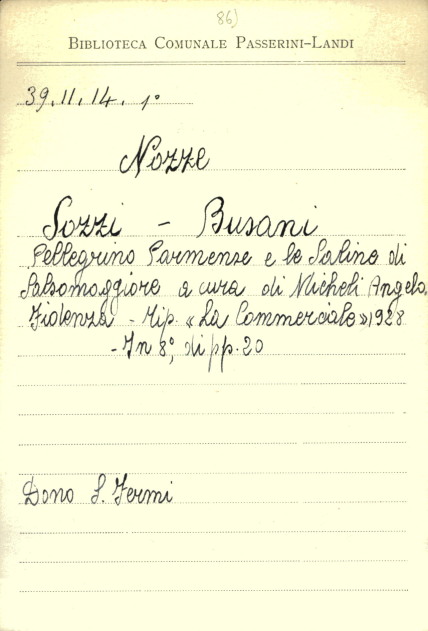 86)
BIBLIOTECA COMUNALE PASSERINI-LANDI
39.II.14.1°
Nozze
Sozzi - Busani
Pellegrino Parmense e le Saline di
Salsomaggiore a cura di Micheli Angelo.
Fidenza - Tip. «La Commerciale» 1928
- In 8°, di pp. 20
Dono S. Fermi